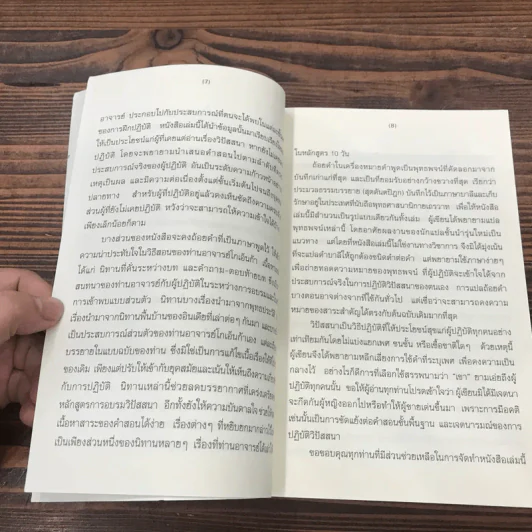 (7)
อาจารย์ ประกอบไปกับประสบการณ์ที่ตนจะได้พบ
ของการฝึกปฏิบัติ หนังสือเล่มนี้ได้นำข้อมูลนั้นมาเรียบเรียง
ให้เป็นประโยชน์แก่ผู้ที่เคยแต่อ่านเรื่องวิปัสสนา
ปฏิบัติ โดยจะพยายามนำเสนอคำสอนไปตามลำดับ
ประสบการณ์จริงของผู้ปฏิบัติ อันเป็นระดับความก้าวหน้า
เหตุเป็นผล และมีความต่อเนื่องตั้งแต่ขั้นเริ่มต้นไปจนถึง
ปลายทาง สำหรับผู้ที่ปฏิบัติอยู่แล้วคงเห็นชัดถึงความ
ส่วนผู้ที่ยังไม่เคยปฏิบัติ หวังว่าจะสามารถให้ความเข้าใจได้
เพียงเล็กน้อยก็ตาม
บางส่วนของหนังสือจะคงถ้อยคำที่เป็นภาษาพูดไว้
ความน่าประทับใจในวิธีสอนของท่านอาจารย์โกเอ็นก้า
ได้แก่ นิทานที่คั่นระหว่างบท และคำถาม-ตอบท้ายบท
สนทนาของท่านอาจารย์กับผู้ปฏิบัติในระหว่างการอบรม
การเข้าพบแบบส่วนตัว นิทานบางเรื่องนำมาจากพุทธประวัติ
เรื่องนำมาจากนิทานพื้นบ้านของอินเดียที่เล่าต่อๆ กันมา
เป็นประสบการณ์ส่วนตัวของท่านอาจารย์โกเอ็นก้าเอง
บรรยายในแบบฉบับของท่าน ซึ่งมิใช่เป็นการแก้ไขเนื้อเรื่อง
ของเดิม เพียงแต่ปรับให้เข้ากับยุคสมัยและเน้นให้เห็นถึงความ
กับการปฏิบัติ นิทานเหล่านี้ช่วยลดบรรยากาศที่เคร่งเครียด
หลักสูตรการอบรมวิปัสสนา อีกทั้งยังให้ความบันดาลใจ
เนื้อหาสาระของคำสอนได้ง่าย เรื่องต่างๆ ที่หยิบยกมา
เป็นเพียงส่วนหนึ่งของนิทานหลายๆ เรื่องที่ท่านอาจารย์ได้
(8)
ในหลักสูตร 10 วัน
ถ้อยคำในเครื่องหมายคำพูดเป็นพุทธพจน์ที่คัดลอกมาจาก
บันทึกเก่าแก่ที่สุด และเป็นที่ยอมรับอย่างกว้างขวางที่สุด เรียกว่า
ประมวลธรรมบรรยาย (สุตตันตปิฎก) บันทึกไว้เป็นภาษาบาลีและเก็บ
รักษาอยู่ในประเทศที่นับถือพุทธศาสนานิกายเถรวาท เพื่อให้หนังสือ
เล่มนี้มีสำนวนเป็นรูปแบบเดียวกันทั้งเล่ม ผู้เขียนได้พยายามแปล
พุทธพจน์เหล่านี้ โดยอาศัยผลงานของนักแปลชั้นนำรุ่นใหม่เป็น
แนวทาง แต่โดยที่หนังสือเล่มนี้ไม่ใช่งานทางวิชาการ จึงมิได้มุ่งเน้น
ที่จะแปลคำบาลีให้ถูกต้องชนิดคำต่อคำ แต่พยายามใช้ภาษาง่ายๆ
เพื่อถ่ายทอดความหมายของพุทธพจน์ ที่ผู้ปฏิบัติจะเข้าใจได้จาก
ประสบการณ์จริงในการปฏิบัติวิปัสสนาของตนเอง การแปลถ้อยคำ
บางตอนอาจต่างจากที่ใช้กันทั่วไป แต่เชื่อว่าจะสามารถคงความ
หมายของสาระสำคัญได้ตรงกับต้นฉบับเดิมมากที่สุด
วิปัสสนาเป็นวิธีปฏิบัติที่ให้ประโยชน์สุขแก่ผู้ปฏิบัติทุกคนอย่าง
เท่าเทียมกันโดยไม่แบ่งแยกเพศ ชนชั้น หรือเชื้อชาติใดๆ ด้วยเหตุนี้
ผู้เขียนจึงได้พยายามหลีกเลี่ยงการใช้คำที่ระบุเพศ เพื่อคงความเป็น
กลางไว้ อย่างไรก็ดีการที่เลือกใช้สรรพนามว่า "เขา" ยามเอ่ยถึงผู้
ปฏิบัติทุกคนนั้น ขอให้ผู้อ่านทุกท่านโปรดเข้าใจว่า ผู้เขียนมิได้มีเจตนา
จะกีดกันผู้หญิงออกไปหรือทำให้ผู้ชายเด่นขึ้นมา เพราะการมีอคติ
เช่นนั้นเป็นการขัดแย้งต่อคำสอนขั้นพื้นฐาน และเจตนารมณ์ของการ
ปฏิบัติวิปัสสนา
ขอขอบคุณทุกท่านที่มีส่วนช่วยเหลือในการจัดทำหนังสือเล่มนี้